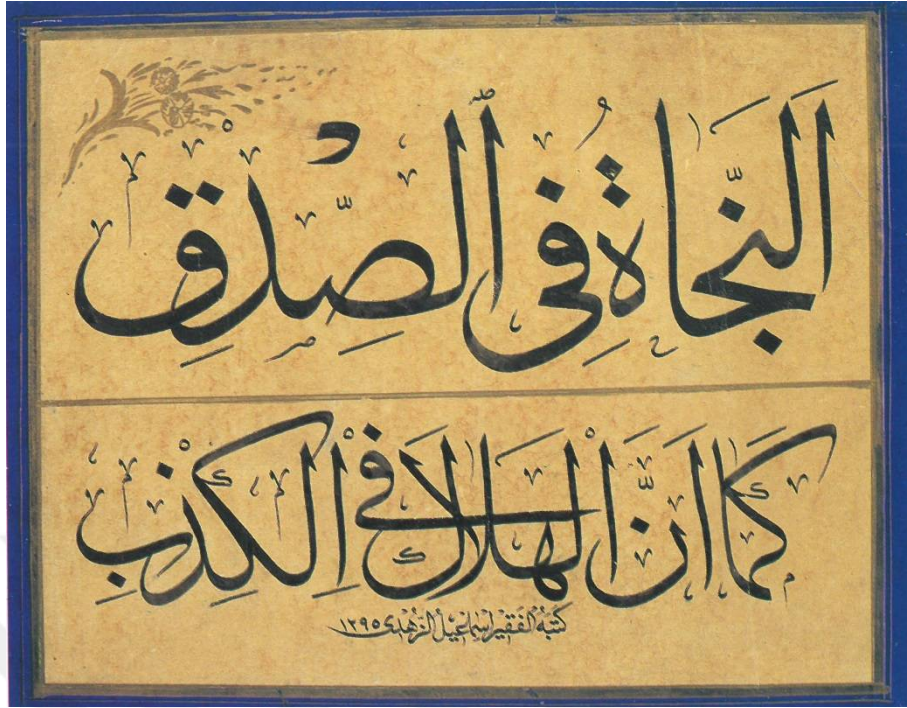 اَلنَّجَاةُ فِى ٱلصِّدْقِ
كَمَا اَنَّ الْهَلَاكَ فِى الْكِذْبِ
كتبه الفقير اسماعيل الزهدى ١٢٩٥